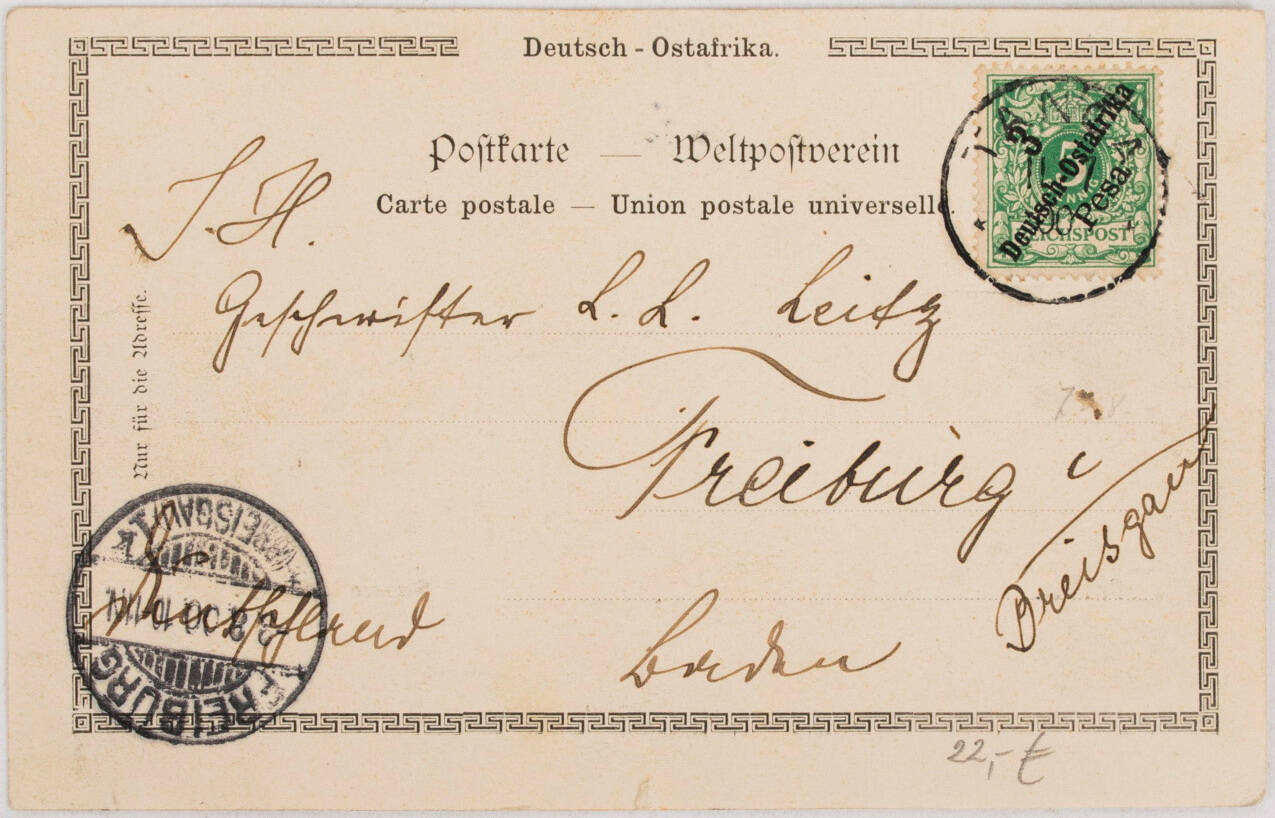 Deutsch - Ostafrika.
Postkarte — Weltpostverein
Carte postale — Union postale universelle.
TANGA
3
5
Deutsch-Ostafrika
Pesa
REICHSPOST
S. H.
Geschwister L. L. Leitz
Freiburg i
Breisgau
Baden
Deutschland
Nur für die Adresse.
FREIBURG
(BREISGAU)
22,- €